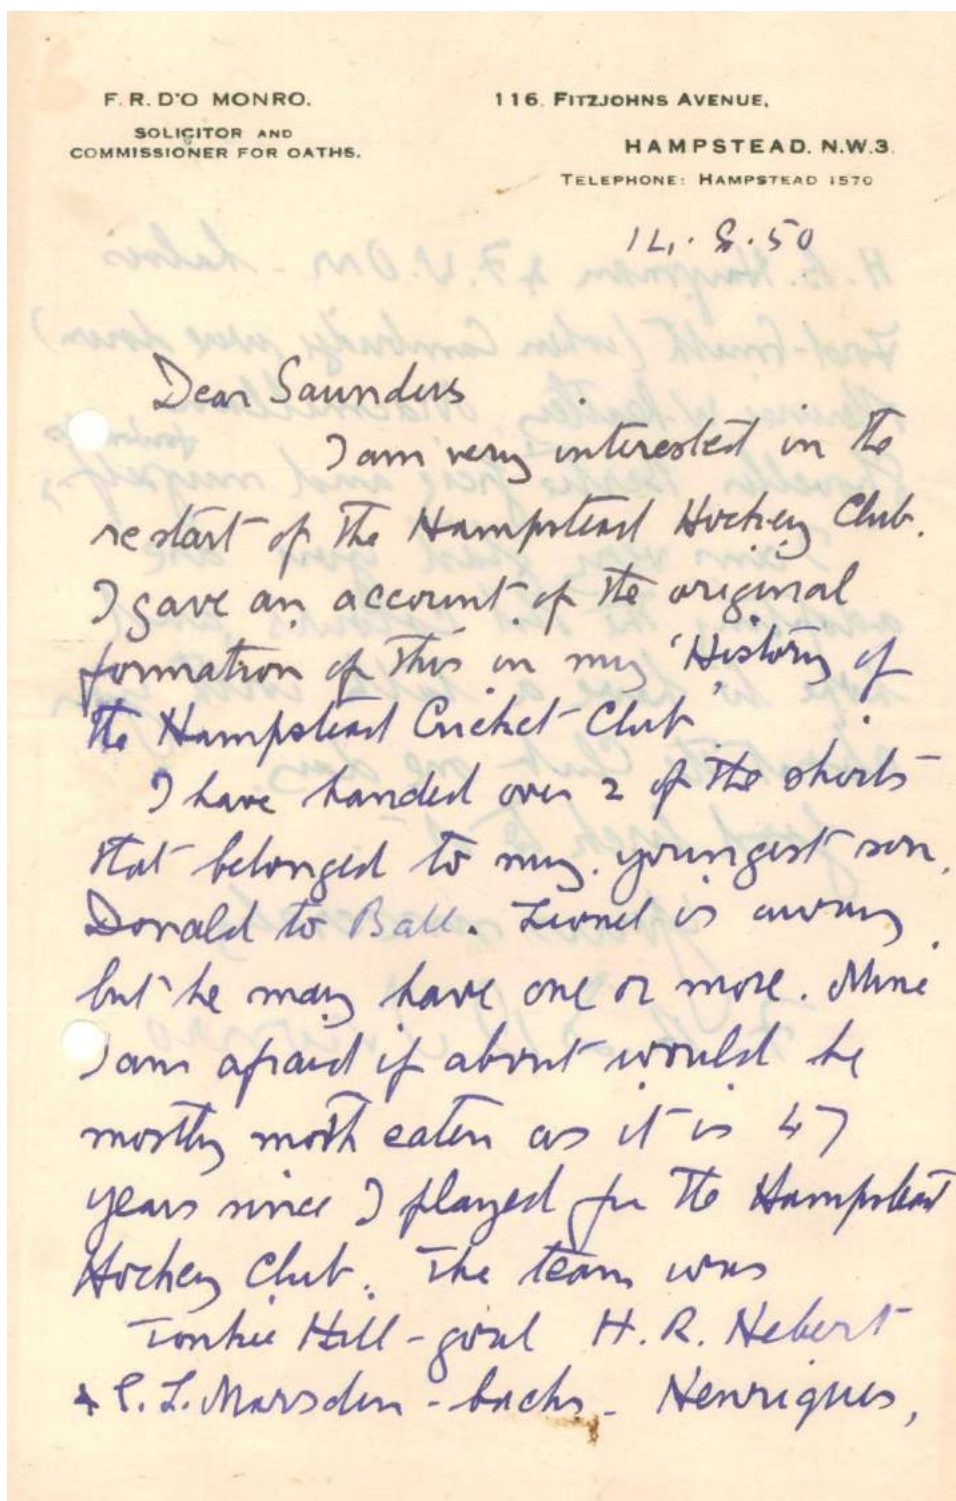 F. R. D'O MONRO.
SOLICITOR AND
COMMISSIONER FOR OATHS.
116, FITZJOHNS AVENUE,
HAMPSTEAD. N.W.3.
TELEPHONE: HAMPSTEAD 1570
14.8.50
Dear Saunders
I am very interested in the
restart of the Hampstead Hockey Club.
I gave an account of the original
formation of this in my 'History of
the Hampstead Cricket Club'.
I have handed over 2 of the shirts
that belonged to my youngest son,
Donald to Ball. Lionel is away
but he may have one or more. Mine
I am afraid if about would be
mostly moth eaten as it is 47
years since I played for the Hampstead
Hockey Club. The team was
Hill - goal H. R. Hebert
& C. L. Marsden - backs - Henriques,